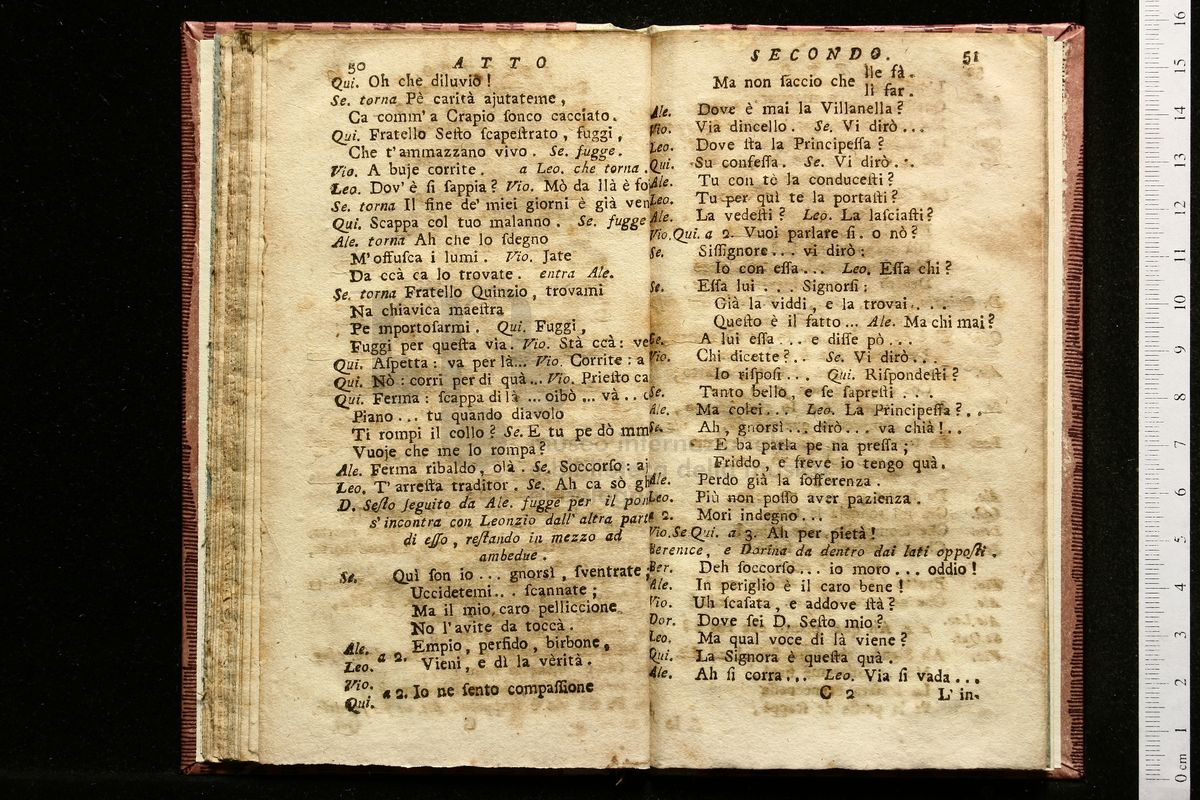 50 ATTO
Qui. Oh che diluvio!
Se. torna Pè carità ajutateme,
Ca comm' a Crapio ſonco cacciato.
Qui. Fratello Seſto ſcapeſtrato, fuggi,
Che t'ammazzano vivo. Se. fugge.
Vio. A buje corrite. a Leo. che torna.
Leo. Dov' è ſi ſappia? Vio. Mò da llà è
Se. torna Il fine de' miei giorni è già
Qui. Scappa col tuo malanno. Se. fugge
Ale. torna Ah che lo ſdegno
M'offuſca i lumi. Vio. Jate
Da ccà ca lo trovate. entra Ale.
Se. torna Fratello Quinzio, trovami
Na chiavica maeſtra
Pe mportoſarmi. Qui. Fuggi,
Fuggi per queſta via. Vio. Stà ccà:
Qui. Aſpetta: va per là... Vio. Corrite: a
Qui. Nò: corri per di quà... Vio. Prieſto ca
Qui. Ferma: ſcappa di là ... oibò ... và ..
Piano... tu quando diavolo
Ti rompi il collo? Se. E tu pe dò
Vuoje che me lo rompa?
Ale. Ferma ribaldo, olà. Se. Soccorſo:
Leo. T'arreſta traditor. Se. Ah ca sò
D. Seſto ſeguito da Ale. fugge per il
s'incontra con Leonzio dall'altra parte
di eſſo, reſtando in mezzo ad
ambedue.
Se. Quì ſon io ... gnorsì, ſventrate;
Uccidetemi... ſcannate;
Ma il mio caro pelliccione
No l'avite da toccà.
Ale. Leo. a 2. Empio, perfido, birbone,
Vieni, e dì la verità.
Vio. Qui. a 2. Io ne ſento compaſſione
SECONDO. 51
Ma non ſaccio che lle fà.
li far.
Ale. Dove è mai la Villanella?
Vio. Via dincello. Se. Vi dirò...
Leo. Dove ſta la Principeſſa?
Qui. Su confeſſa. Se. Vi dirò...
Ale. Tu con tè la conduceſti?
Leo. Tu per quì te la portaſti?
Ale. La vedeſti? Leo. La laſciaſti?
Vio. Qui. a 2. Vuoi parlare ſi. o nò?
Se. Siſſignore... vi dirò:
Io con eſſa... Leo. Eſſa chi?
Se. Eſſa lui... Signorſi:
Già la viddi, e la trovai....
Queſto è il fatto... Ale. Ma chi mai?
Se. A lui eſſa... e diſſe pò...
Vio. Chi dicette?.. Se. Vi dirò...
Io riſpoſi... Qui. Riſpondeſti?
Se. Tanto bello, e ſe ſapreſti...
Ale. Ma colei... Leo. La Principeſſa?..
Se. Ah, gnorsì... dirò... va chià!..
E ba parla pe na preſſa;
Friddo, e freve io tengo quà.
Ale. Perdo già la ſofferenza.
Leo. Più non poſſo aver pazienza.
a 2. Mori indegno...
Vio. Se Qui. a 3. Ah per pietà!
Berenice, e Dorina da dentro dai lati oppoſti.
Ber. Deh ſoccorſo... io moro... oddio!
Ale. In periglio è il caro bene!
Vio. Uh ſcaſata, e addove ſtà?
Dor. Dove ſei D. Seſto mio?
Leo. Ma qual voce di là viene?
Qui. La Signora è queſta quà.
Ale. Ah ſi corra... Leo. Via ſi vada...
C 2 L'in-